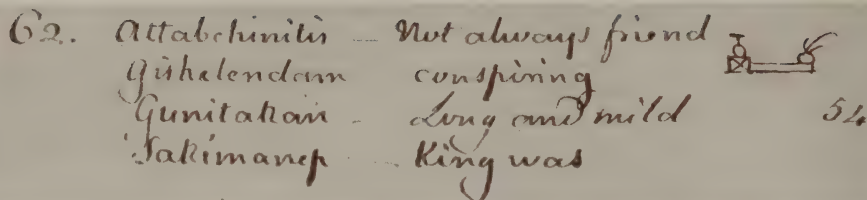 62. Attabchinitis - Not always friend
Gishelendam conspiring
Gunitakan - Long and mild 54
Jakimanep - King was